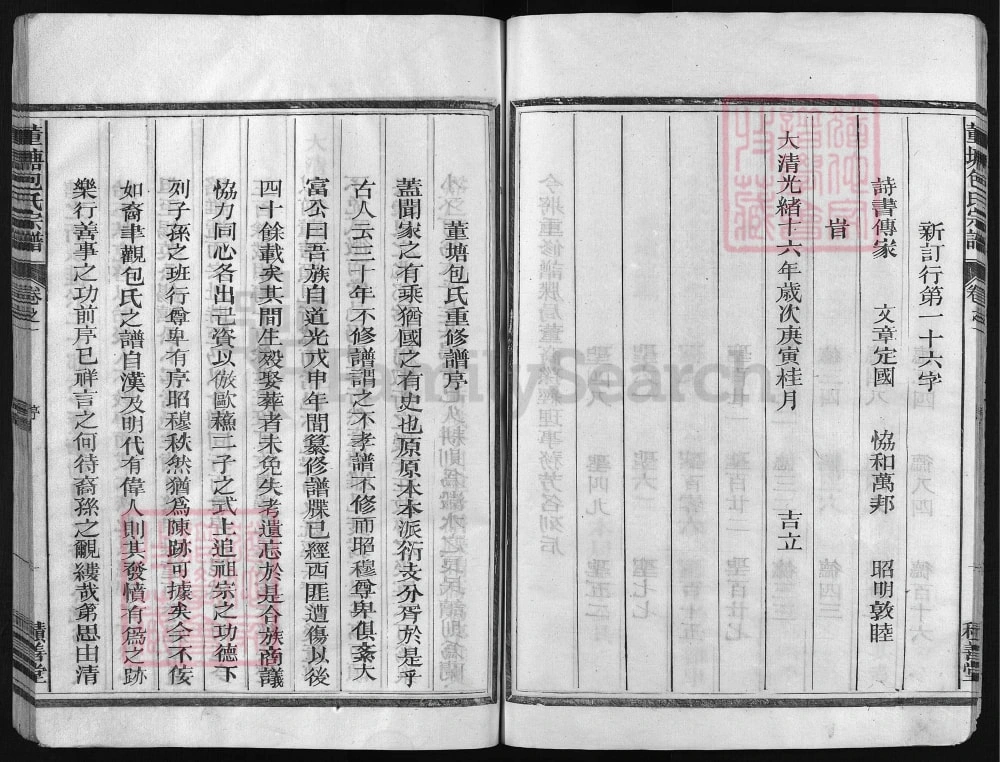 新訂行第一十六字
詩書傳家 文章定國 恊和萬邦 昭明敦睦
旹
大清光緖十六年歲次庚寅桂月 吉立
董塘包氏宗譜 卷之一
積善堂
董塘包氏重修譜序
蓋聞家之有乘猶國之有史也原原本本派衍支分胥於是乎
古人云三十年不修譜謂之不孝譜不修而昭穆尊卑俱紊大
富公曰吾族自道光戊申年間纂修譜牒已經西匪遭傷以後
四十餘載矣其間生殁娶葬者未免失考遺忘於是合族商議
恊力同心各出己資以倣歐蘓二子之式上追祖宗之功德下
列子孫之班行尊卑有序昭穆秩然猶爲陳跡可據矣今不佞
如裔聿觀包氏之譜自漢及明代有偉人則其發憤有爲之跡
樂行善事之功前序已祥言之何待裔孫之覼縷哉第思由清
董塘包氏宗譜 卷之一 序
積善堂
FamilySearch